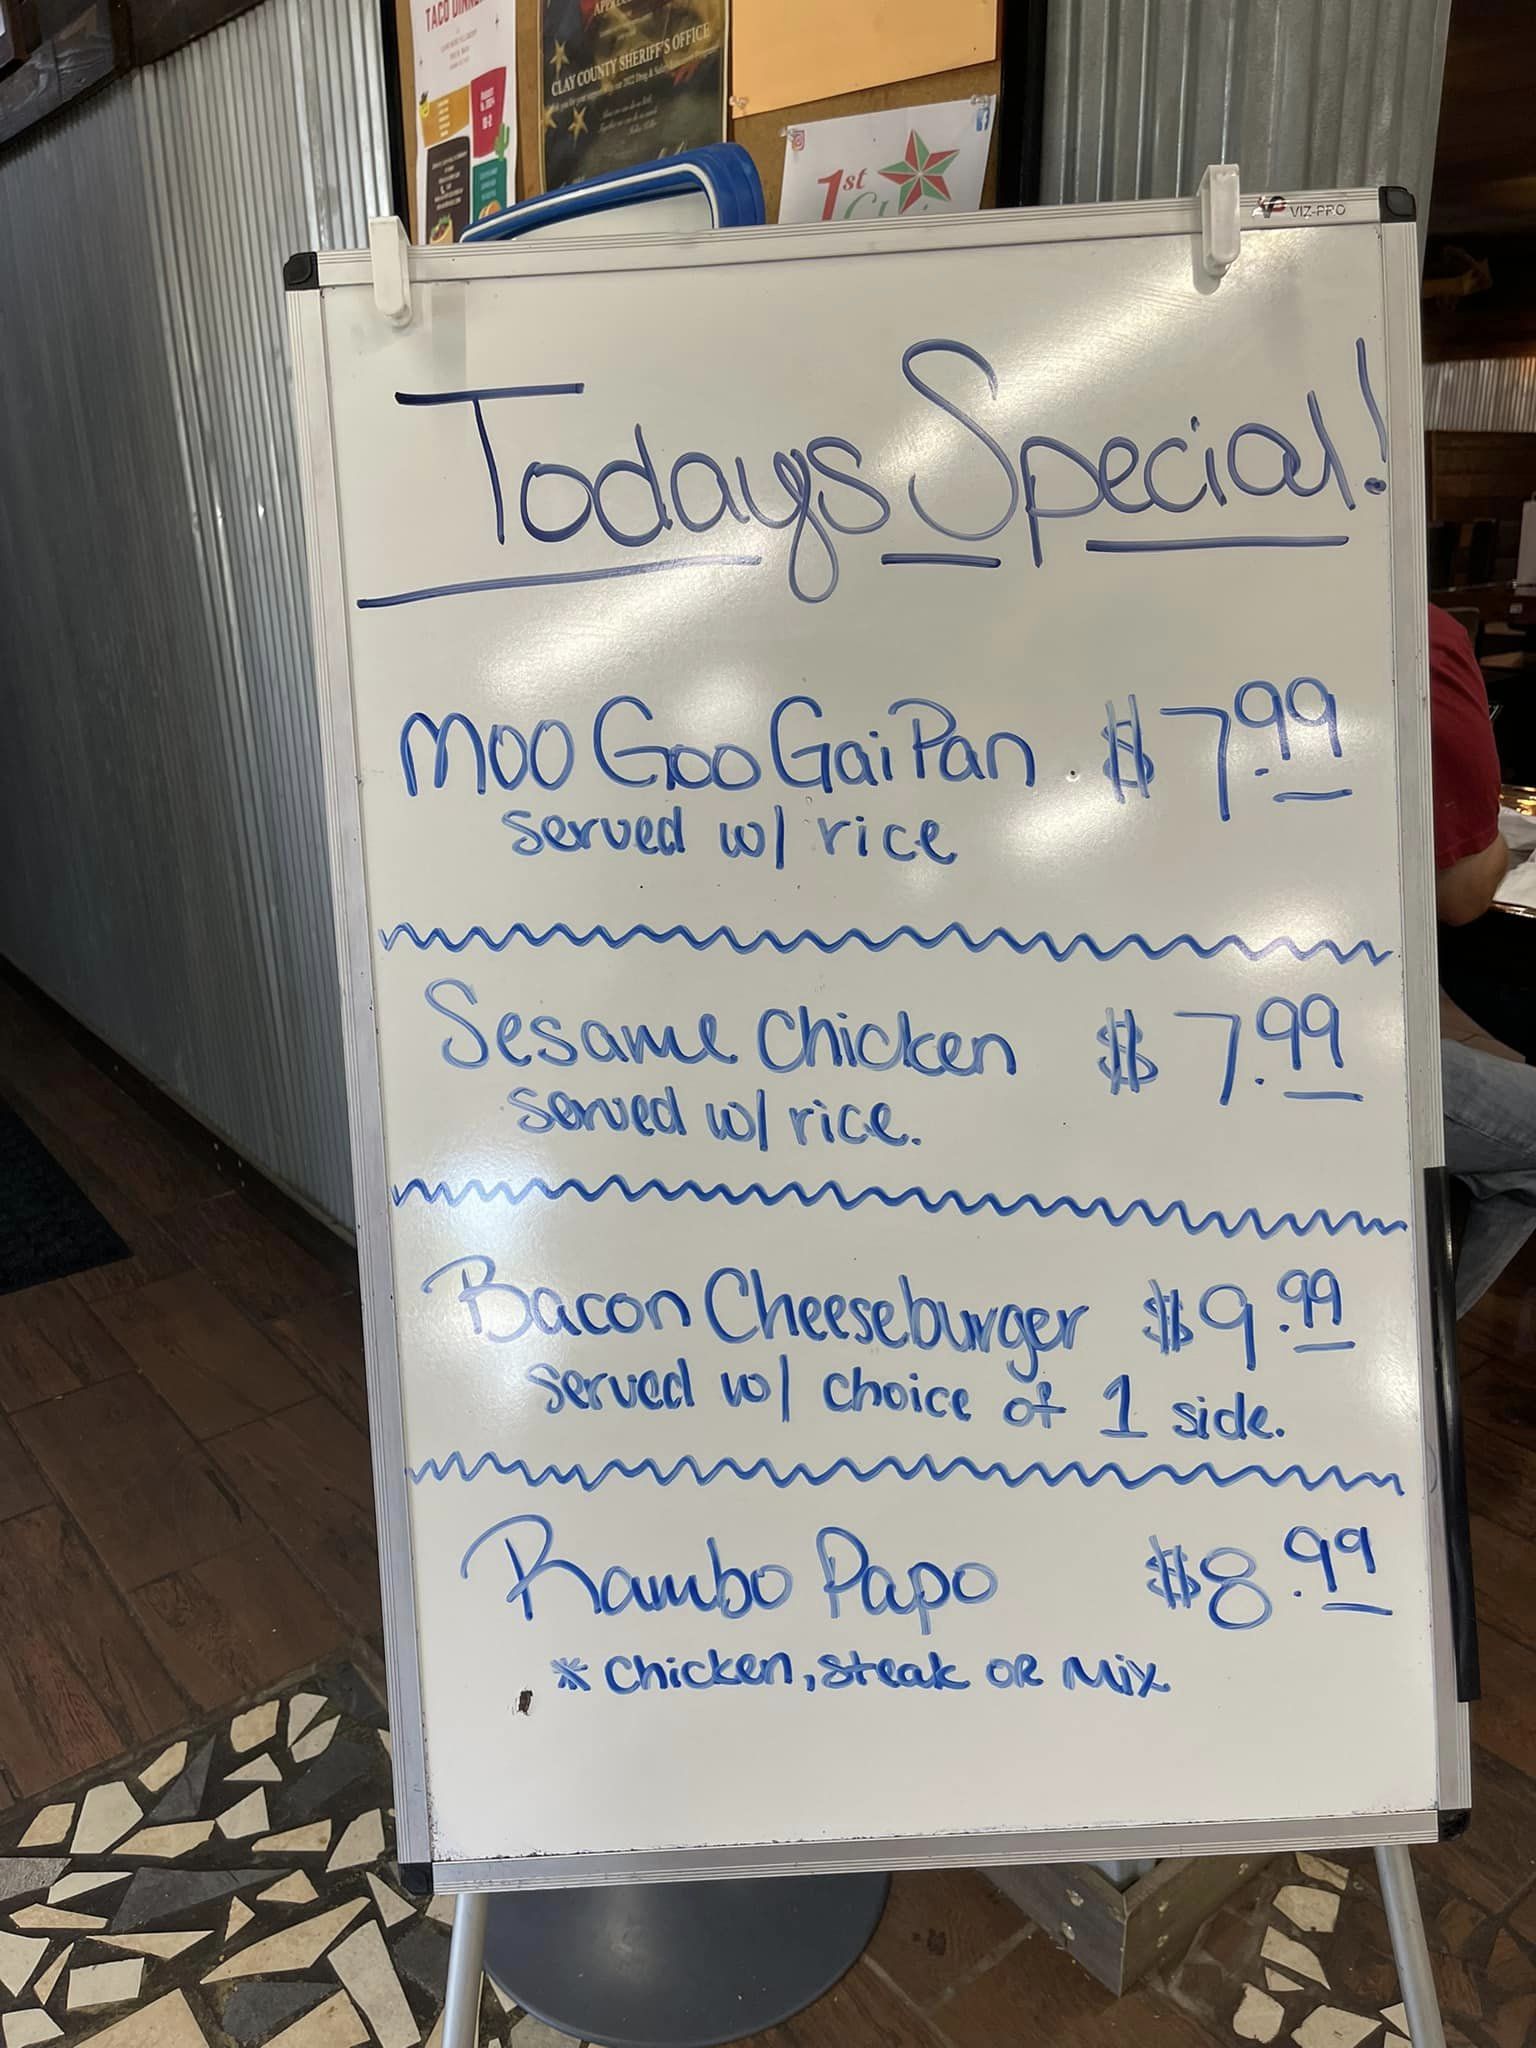 TACO DINNE
CLAY COUNTY SHERIFF'S OFFICE
1st
VIZ-PRO
Todays Special!
Moo Goo Gai Pan $7.99
served w/ rice
Sesame Chicken $7.99
served w/ rice.
Bacon Cheeseburger $9.99
served w/ choice of 1 side.
Rambo Papo $8.99
* Chicken, steak OR Mix